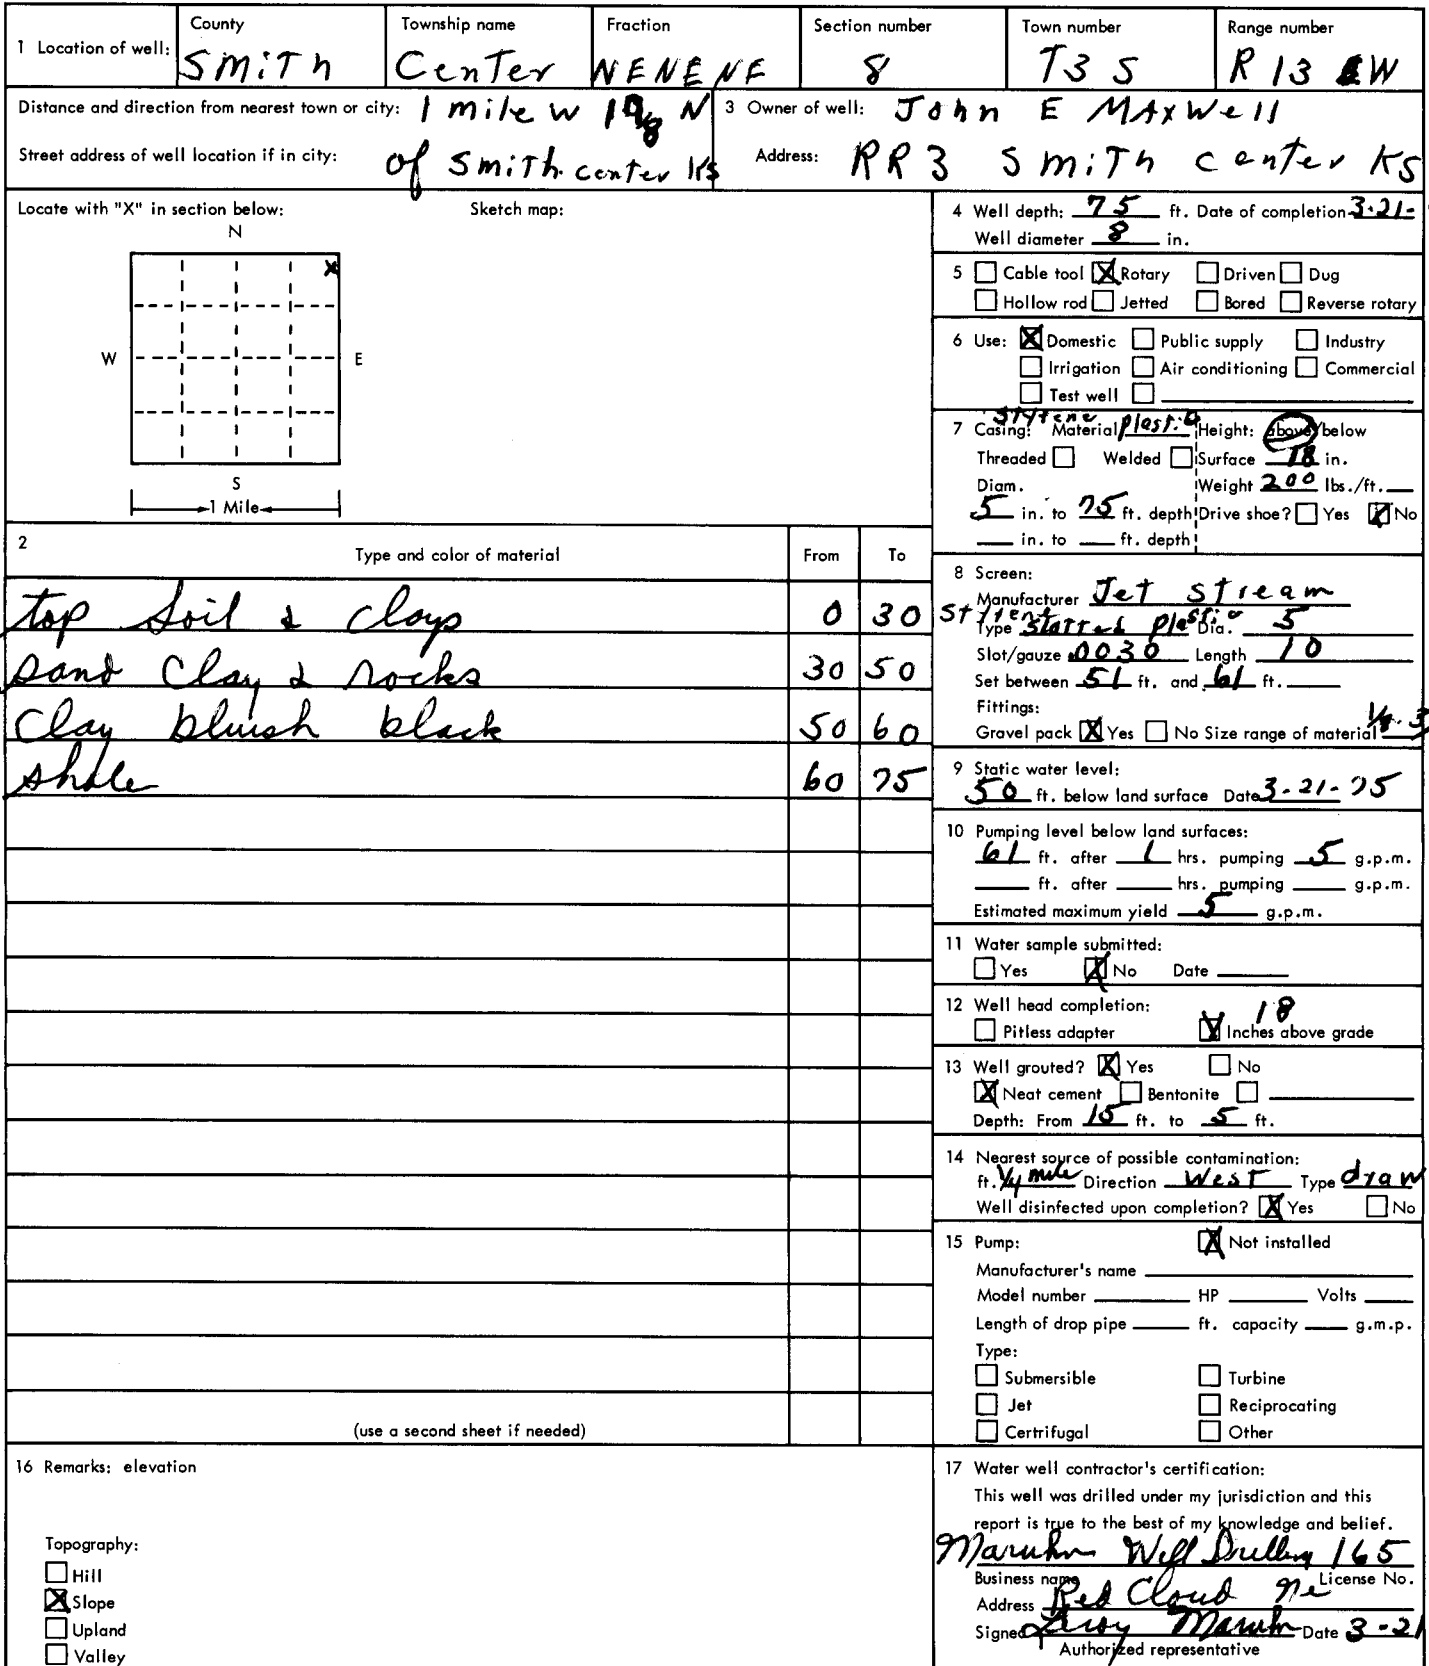 1 Location of well: County Smith Township name Center Fraction NE NE NE Section number 8 Town number T3 S Range number R 13 W
Distance and direction from nearest town or city: 1 mile W N 3 Owner of well: John E Maxwell
Street address of well location if in city: of Smith center Ks Address: RR3 Smith center KS
Locate with "X" in section below: Sketch map:
N
X
W E
S
1 Mile
2 Type and color of material From To
top soil & clays 0 30
sand clay & rocks 30 50
Clay bluish black 50 60
shale 60 75
(use a second sheet if needed)
4 Well depth: 75 ft. Date of completion 3-21-
Well diameter 8 in.
5 Cable tool X Rotary Driven Dug
Hollow rod Jetted Bored Reverse rotary
6 Use: X Domestic Public supply Industry
Irrigation Air conditioning Commercial
Test well
Styrene
7 Casing: Material plastic Height: above/below
Threaded Welded Surface 18 in.
Diam. Weight 200 lbs./ft.
5 in. to 75 ft. depth Drive shoe? Yes X No
in. to ft. depth
8 Screen:
Manufacturer Jet stream
Styrene
Type plastic Dia. 5
Slot/gauze .0030 Length 10
Set between 51 ft. and 61 ft.
Fittings:
Gravel pack X Yes No Size range of material
9 Static water level:
50 ft. below land surface Date 3-21-75
10 Pumping level below land surfaces:
61 ft. after 1 hrs. pumping 5 g.p.m.
ft. after hrs. pumping g.p.m.
Estimated maximum yield 5 g.p.m.
11 Water sample submitted:
Yes X No Date
12 Well head completion: 18
Pitless adapter X Inches above grade
13 Well grouted? X Yes No
X Neat cement Bentonite
Depth: From 15 ft. to 5 ft.
14 Nearest source of possible contamination:
ft. 1/4 mile Direction West Type draw
Well disinfected upon completion? X Yes No
15 Pump: X Not installed
Manufacturer's name
Model number HP Volts
Length of drop pipe ft. capacity g.m.p.
Type:
Submersible Turbine
Jet Reciprocating
Certrifugal Other
16 Remarks: elevation
Topography:
Hill
X Slope
Upland
Valley
17 Water well contractor's certification:
This well was drilled under my jurisdiction and this
report is true to the best of my knowledge and belief.
Maruhn Well Drilling 165
Business name License No.
Address Red Cloud Ne
Signed Leroy Maruhn Date 3-21
Authorized representative